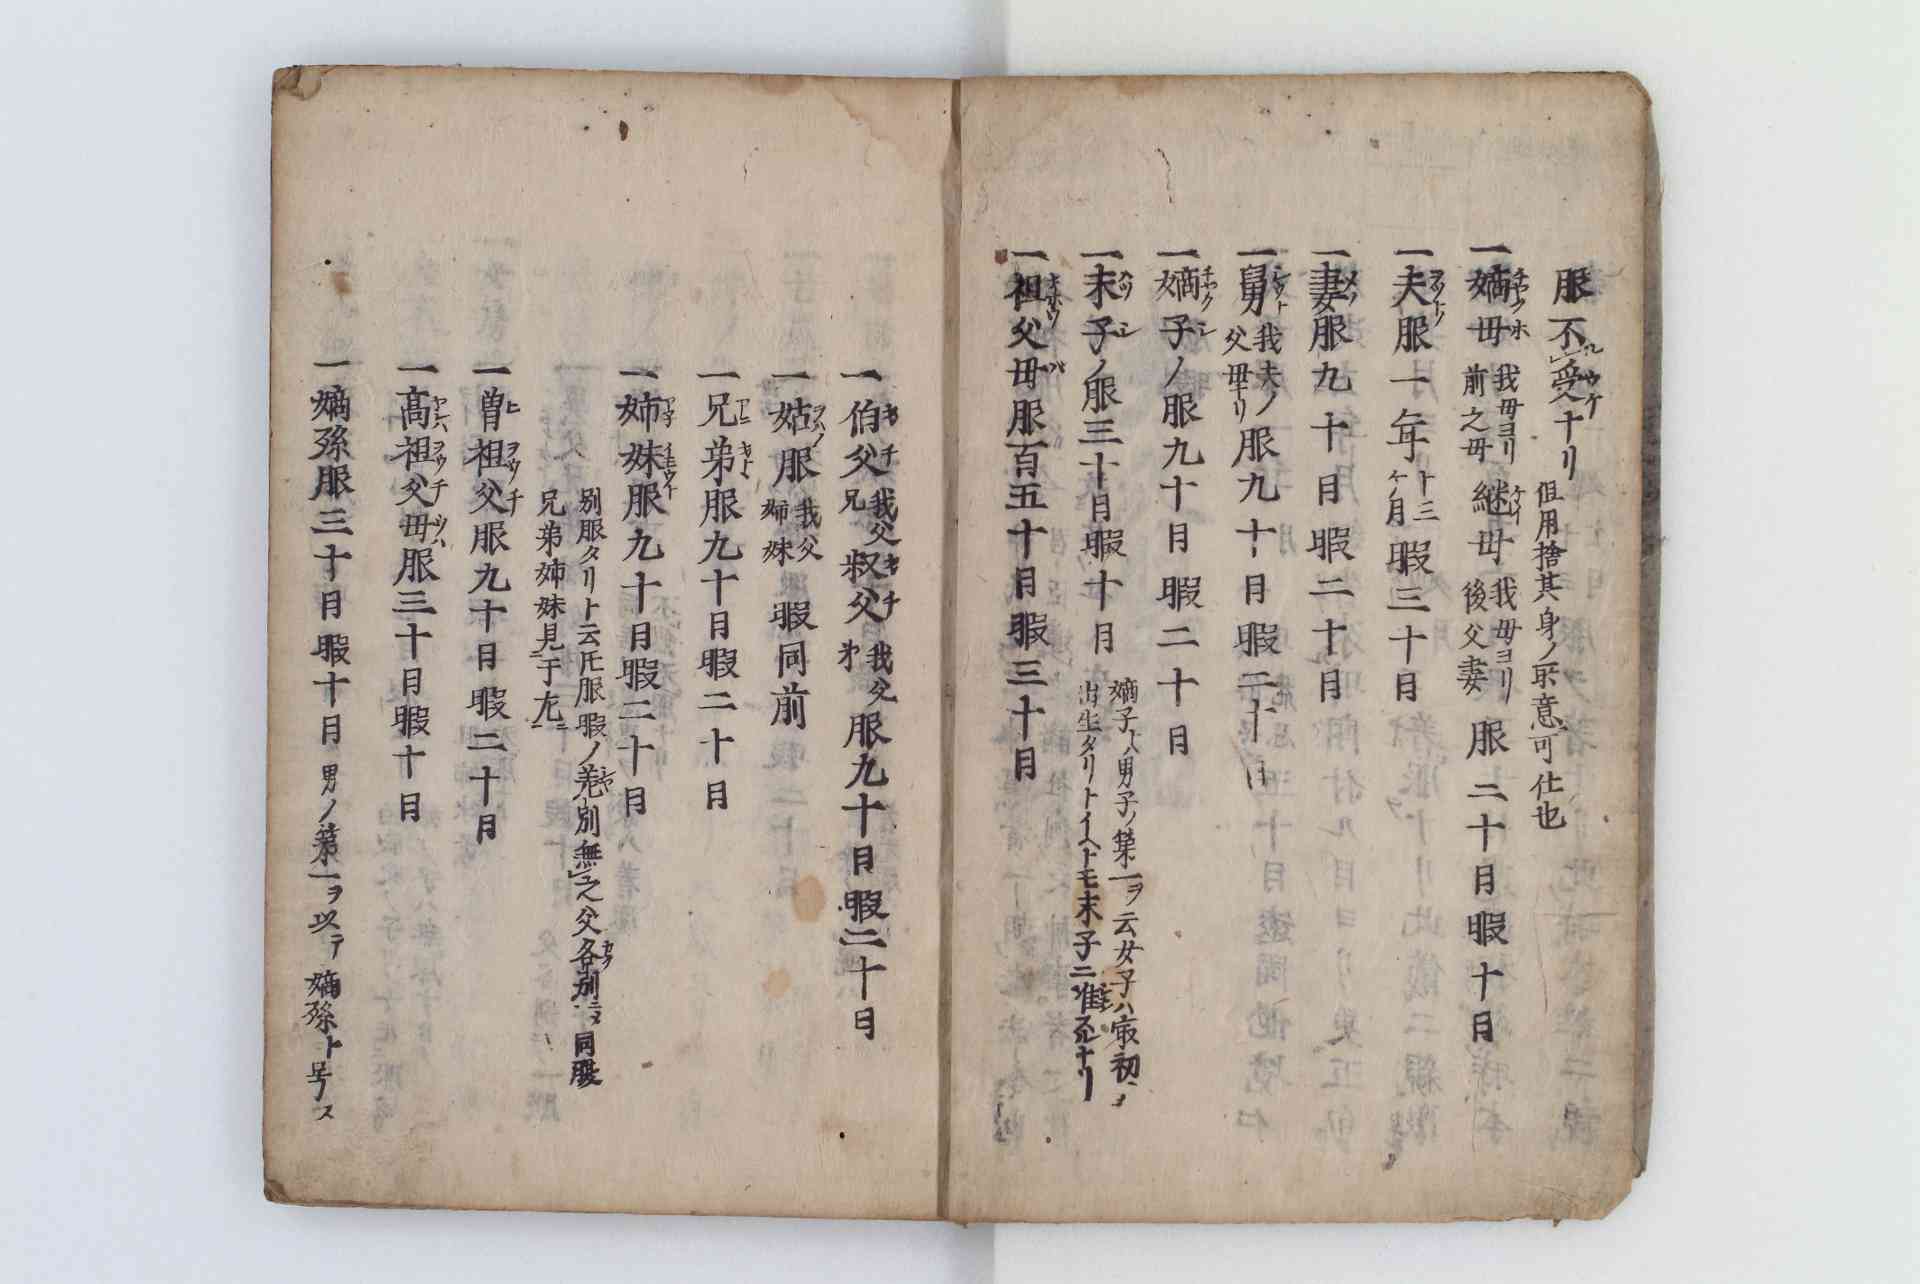 服不受ナリ 但用捨其身ノ所意可仕也
一嫡母 我母ヨリ前之母 継母 我母ヨリ後父妻 服二十日暇十日
一夫服一年 十三ケ月 暇三十日
一妻服九十日暇二十日
一舅 我夫ノ父母ナリ 服九十日暇二十日
一嫡子ノ服九十日暇二十日
一末子ノ服三十日暇十日 嫡子トハ男子ノ第一ヲ云女子ハ最初ニメ出生タリトイヘトモ末子ニ准スルナリ
一祖父母服百五十日暇三十日
一伯父 我父兄 叔父 我父弟 服九十日暇二十日
一姑服 我父姉妹 暇同前
一兄弟服九十日暇二十日
一姉妹服九十日暇二十日
別服タリト云㔟服暇ノ差別無之父各別ニメ同服
兄弟姉妹見于左ニ
一曽祖父服九十日暇二十日
一髙祖父母服三十日暇十日
一嫡孫服三十日暇十日 男ノ第一ヲ以テ嫡孫ト号ス